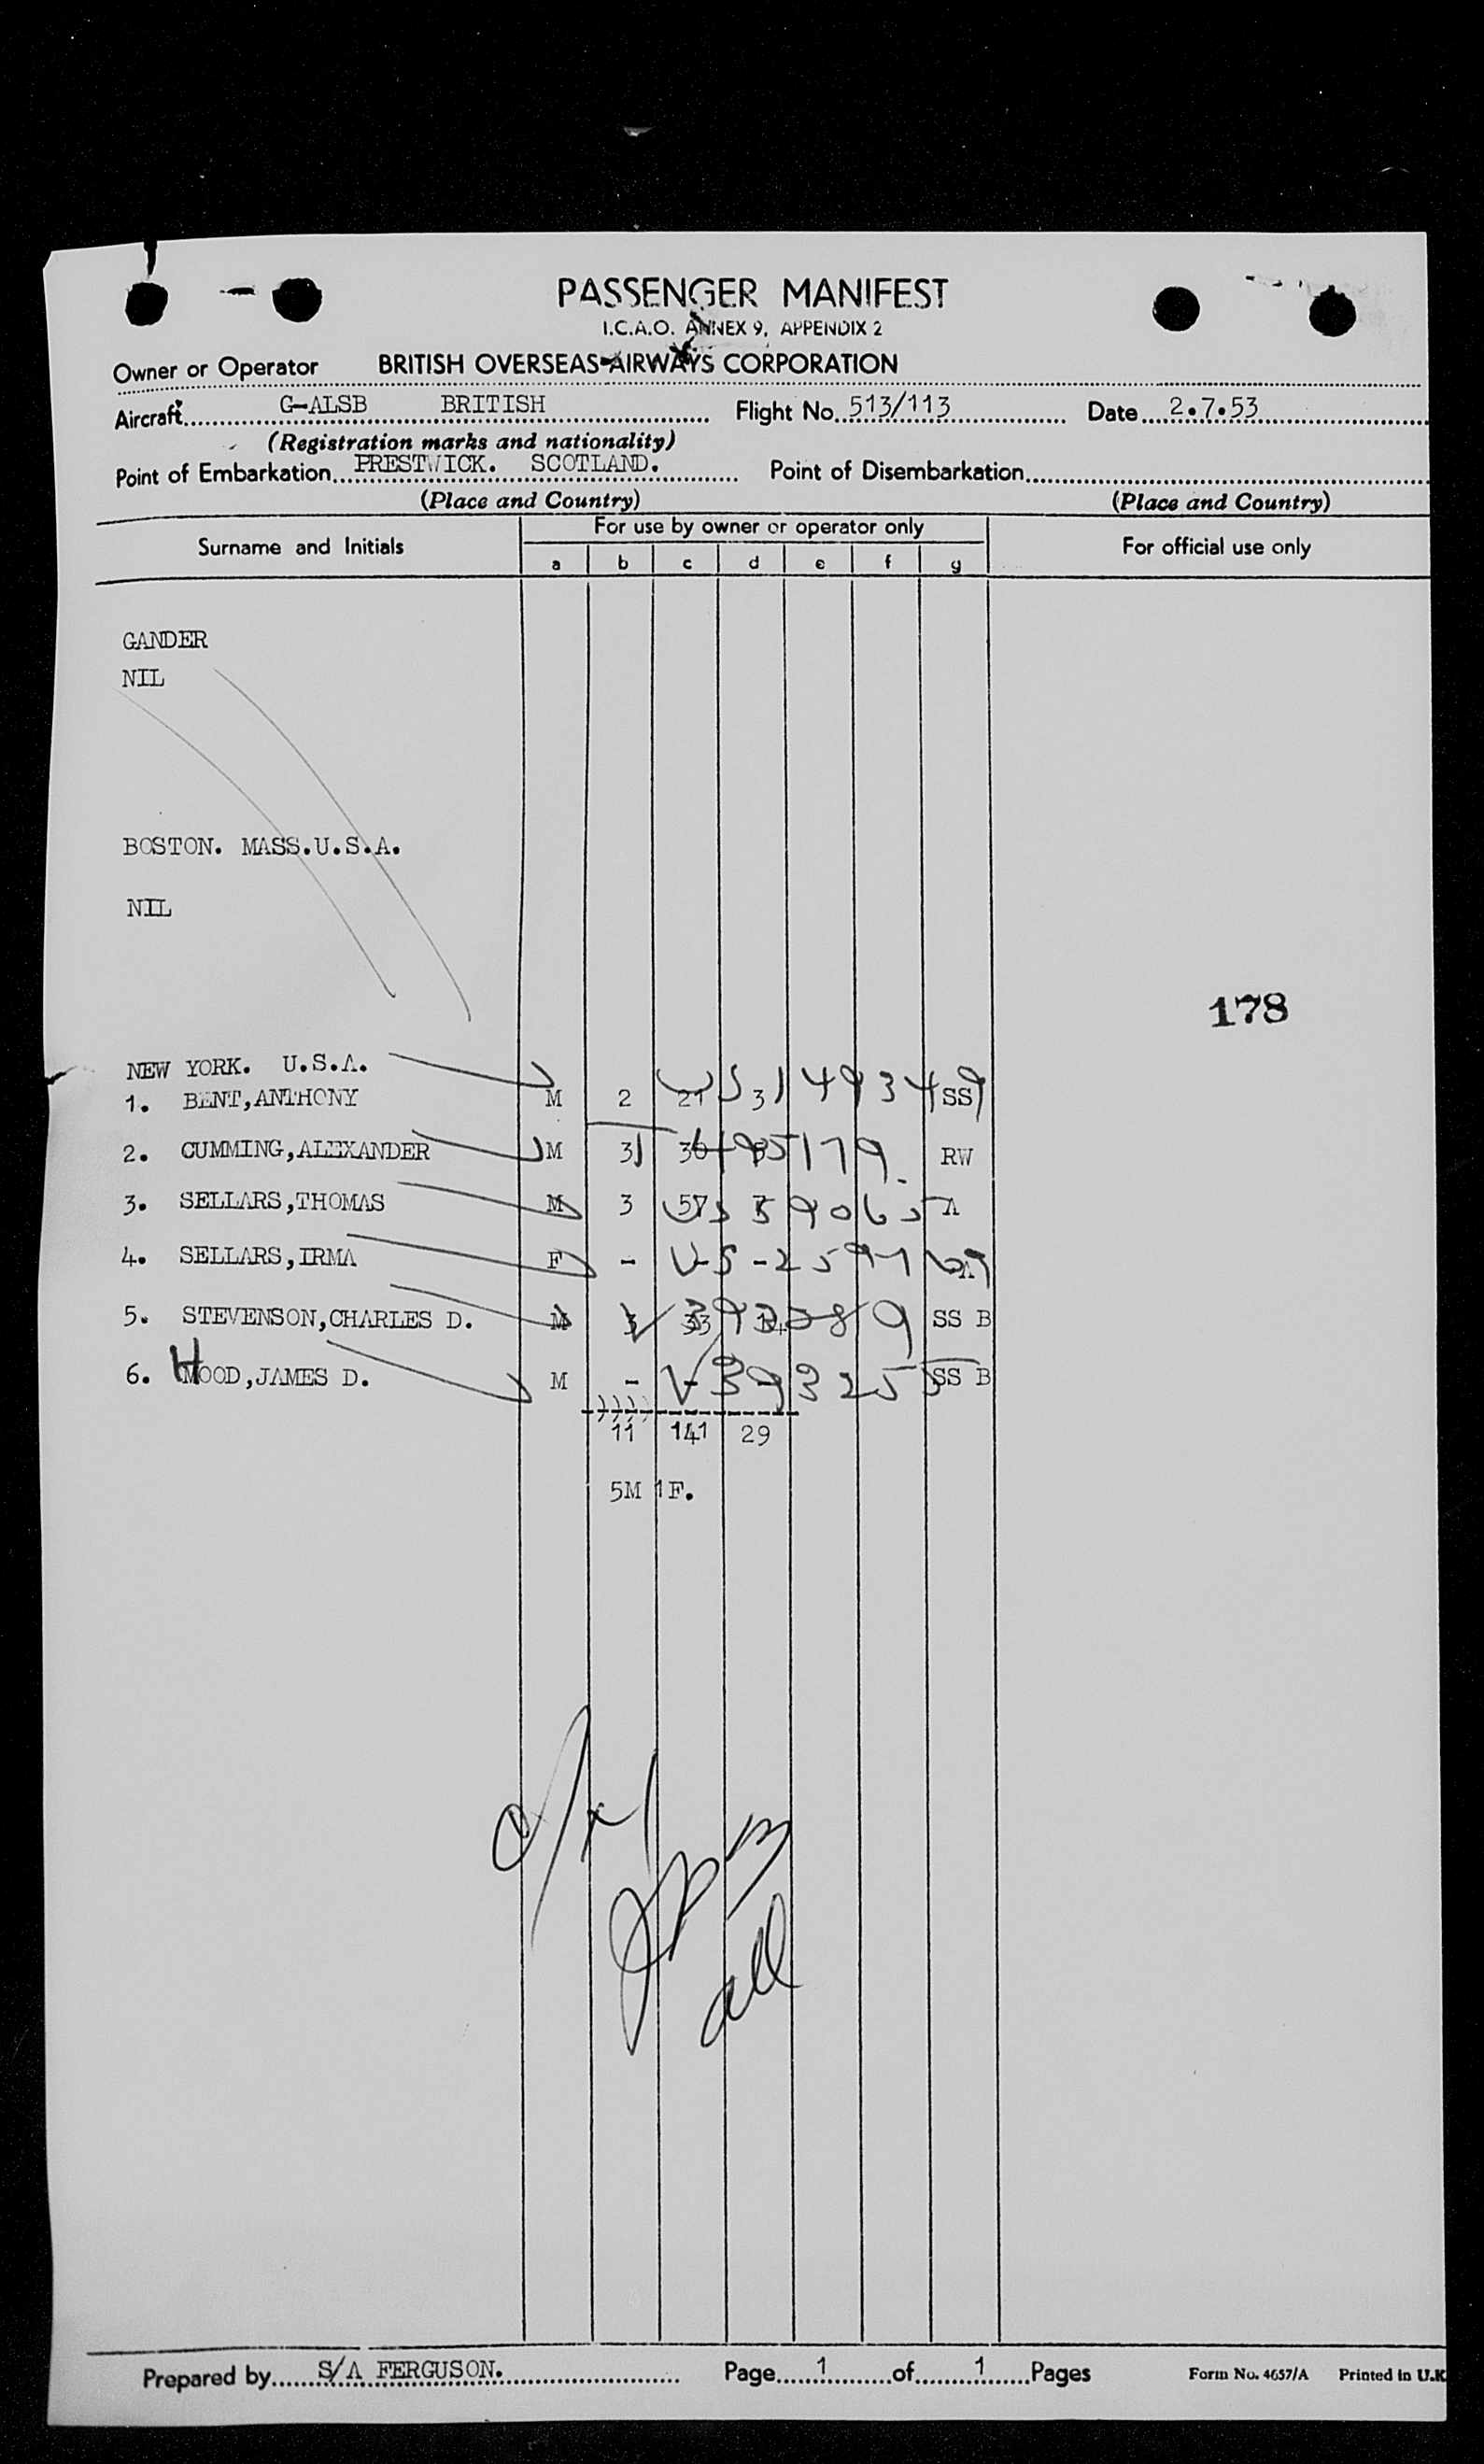 PASSENGER MANIFEST
I.C.A.O. ANNEX 9, APPENDIX 2
Owner or Operator BRITISH OVERSEAS AIRWAYS CORPORATION
Aircraft G-ALSB BRITISH Flight No. 513/113 Date 2.7.53
(Registration marks and nationality)
Point of Embarkation PRESTWICK. SCOTLAND. Point of Disembarkation
(Place and Country) (Place and Country)
For use by owner or operator only
Surname and Initials For official use only
a b c d e f g
GANDER
NIL
BOSTON. MASS.U.S.A.
NIL
178
NEW YORK. U.S.A.
1. BENT,ANTHONY M 2 21 3 SS
2. CUMMING,ALEXANDER M 3 RW
3. SELLARS,THOMAS M 3 57 A
4. SELLARS,IRMA F - - - A
5. STEVENSON,CHARLES D. M 33 SS B
6. HOOD,JAMES D. M - - - SS B
11 141 29
5M 1F.
all
Prepared by S/A FERGUSON. Page 1 of 1 Pages Form No. 4657/A Printed in U.K